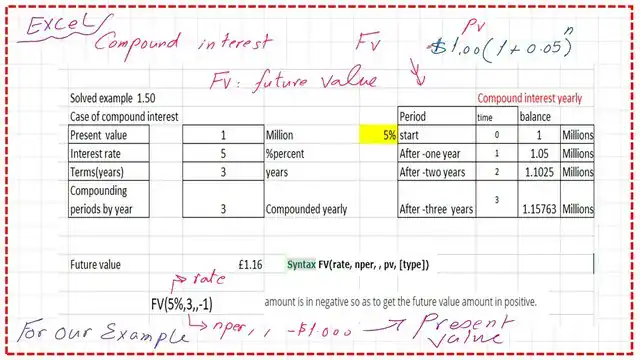 EXCEL
Compound interest FV PV
$1.00(1+0.05)^n
FV: future value
Solved example 1.50 Compound interest yearly
Case of compound interest Period time balance
Present value 1 Million 5% start 0 1 Millions
Interest rate 5 %percent After -one year 1 1.05 Millions
Terms(years) 3 years After -two years 2 1.1025 Millions
Compounding
periods by year 3 Compounded yearly After -three years 3 1.15763 Millions
Future value £1.16 Syntax FV(rate, nper, , pv, [type])
rate
FV(5%,3,,-1) amount is in negative so as to get the future value amount in positive.
For our Example nper, , -$1.000 Present
value